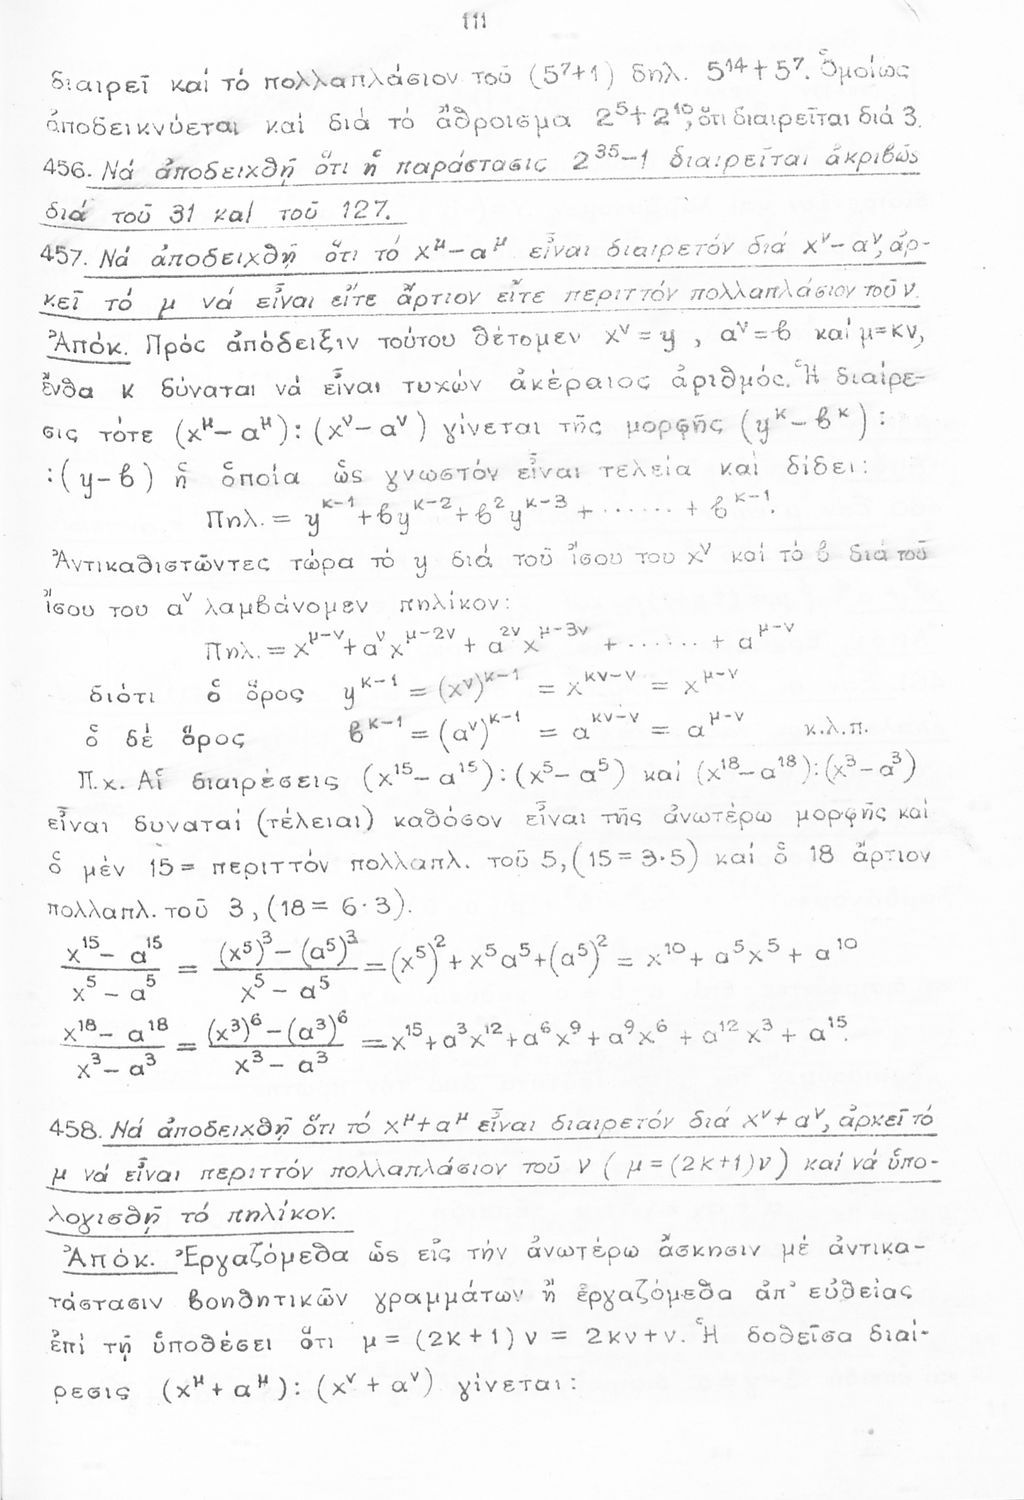 111
διαιρεῖ καί τό πολλαπλάσιον τοῦ (5⁷+1) δηλ. 5¹⁴+5⁷. Ὁμοίως
ἀποδεικνύεται καί διά τό ἄθροισμα 2⁵+2¹⁰, ὅτι διαιρεῖται διά 3.
456. Νά ἀποδειχθῇ ὅτι ἡ παράστασις 2³⁵-1 διαιρεῖται ἀκριβῶς
διά τοῦ 31 καί τοῦ 127.
457. Νά ἀποδειχθῇ ὅτι τό x^μ-α^μ εἶναι διαιρετόν διά x^ν-α^ν, ἀρ-
κεῖ τό μ νά εἶναι εἴτε ἄρτιον εἴτε περιττόν πολλαπλάσιον τοῦ ν.
Ἀπόκ. Πρός ἀπόδειξιν τούτου θέτομεν x^ν = y , α^ν = β καί μ=κν,
ἔνθα κ δύναται νά εἶναι τυχών ἀκέραιος ἀριθμός. Ἡ διαίρε-
σις τότε (x^μ-α^μ):(x^ν-α^ν) γίνεται τῆς μορφῆς (y^κ-β^κ) :
:(y-β) ἡ ὁποία ὡς γνωστόν εἶναι τελεία καί δίδει:
Πηλ. = y^{κ-1}+βy^{κ-2}+β²y^{κ-3}+······+β^{κ-1}.
Ἀντικαθιστῶντες τώρα τό y διά τοῦ ἴσου του x^ν καί τό β διά τοῦ
ἴσου του α^ν λαμβάνομεν πηλίκον:
Πηλ. = x^{μ-ν}+α^ν x^{μ-2ν}+α^{2ν} x^{μ-3ν}+······+α^{μ-ν}
διότι ὁ ὅρος y^{κ-1} = (x^ν)^{κ-1} = x^{κν-ν} = x^{μ-ν}
ὁ δέ ὅρος β^{κ-1} = (α^ν)^{κ-1} = α^{κν-ν} = α^{μ-ν} κ.λ.π.
Π.χ. Αἱ διαιρέσεις (x¹⁵-α¹⁵):(x⁵-α⁵) καί (x¹⁸-α¹⁸):(x³-α³)
εἶναι δυναταί (τέλειαι) καθόσον εἶναι τῆς ἀνωτέρω μορφῆς καί
ὁ μέν 15 = περιττόν πολλαπλ. τοῦ 5,(15=3·5) καί ὁ 18 ἄρτιον
πολλαπλ. τοῦ 3,(18= 6·3).
(x¹⁵-α¹⁵)/(x⁵-α⁵) = ((x⁵)³-(α⁵)³)/(x⁵-α⁵) = (x⁵)²+x⁵α⁵+(α⁵)² = x¹⁰+α⁵x⁵+α¹⁰
(x¹⁸-α¹⁸)/(x³-α³) = ((x³)⁶-(α³)⁶)/(x³-α³) = x¹⁵+α³x¹²+α⁶x⁹+α⁹x⁶+α¹²x³+α¹⁵.
458. Νά ἀποδειχθῇ ὅτι τό x^μ+α^μ εἶναι διαιρετόν διά x^ν+α^ν, ἀρκεῖ τό
μ νά εἶναι περιττόν πολλαπλάσιον τοῦ ν ( μ=(2κ+1)ν ) καί νά ὑπο-
λογισθῇ τό πηλίκον.
Ἀπόκ. Ἐργαζόμεθα ὡς εἰς τήν ἀνωτέρω ἄσκησιν μέ ἀντικα-
τάστασιν βοηθητικῶν γραμμάτων ἤ ἐργαζόμεθα ἀπ' εὐθείας
ἐπί τῇ ὑποθέσει ὅτι μ = (2κ+1)ν = 2κν+ν. Ἡ δοθεῖσα διαί-
ρεσις (x^μ+α^μ):(x^ν+α^ν) γίνεται: